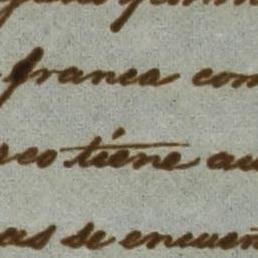 franca com
co tiene au
as se encuen